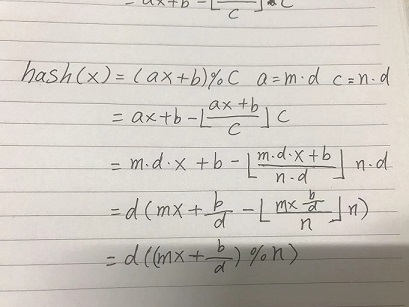 ax+b - ⌊ / c ⌋ · c
hash(x) = (ax+b)%C a=m·d c=n·d
= ax+b - ⌊(ax+b)/c⌋ C
= m·d·x + b - ⌊(m·d·x+b)/(n·d)⌋ n·d
= d(mx + b/d - ⌊(mx b/d)/n⌋ n)
= d((mx + b/d) % n)